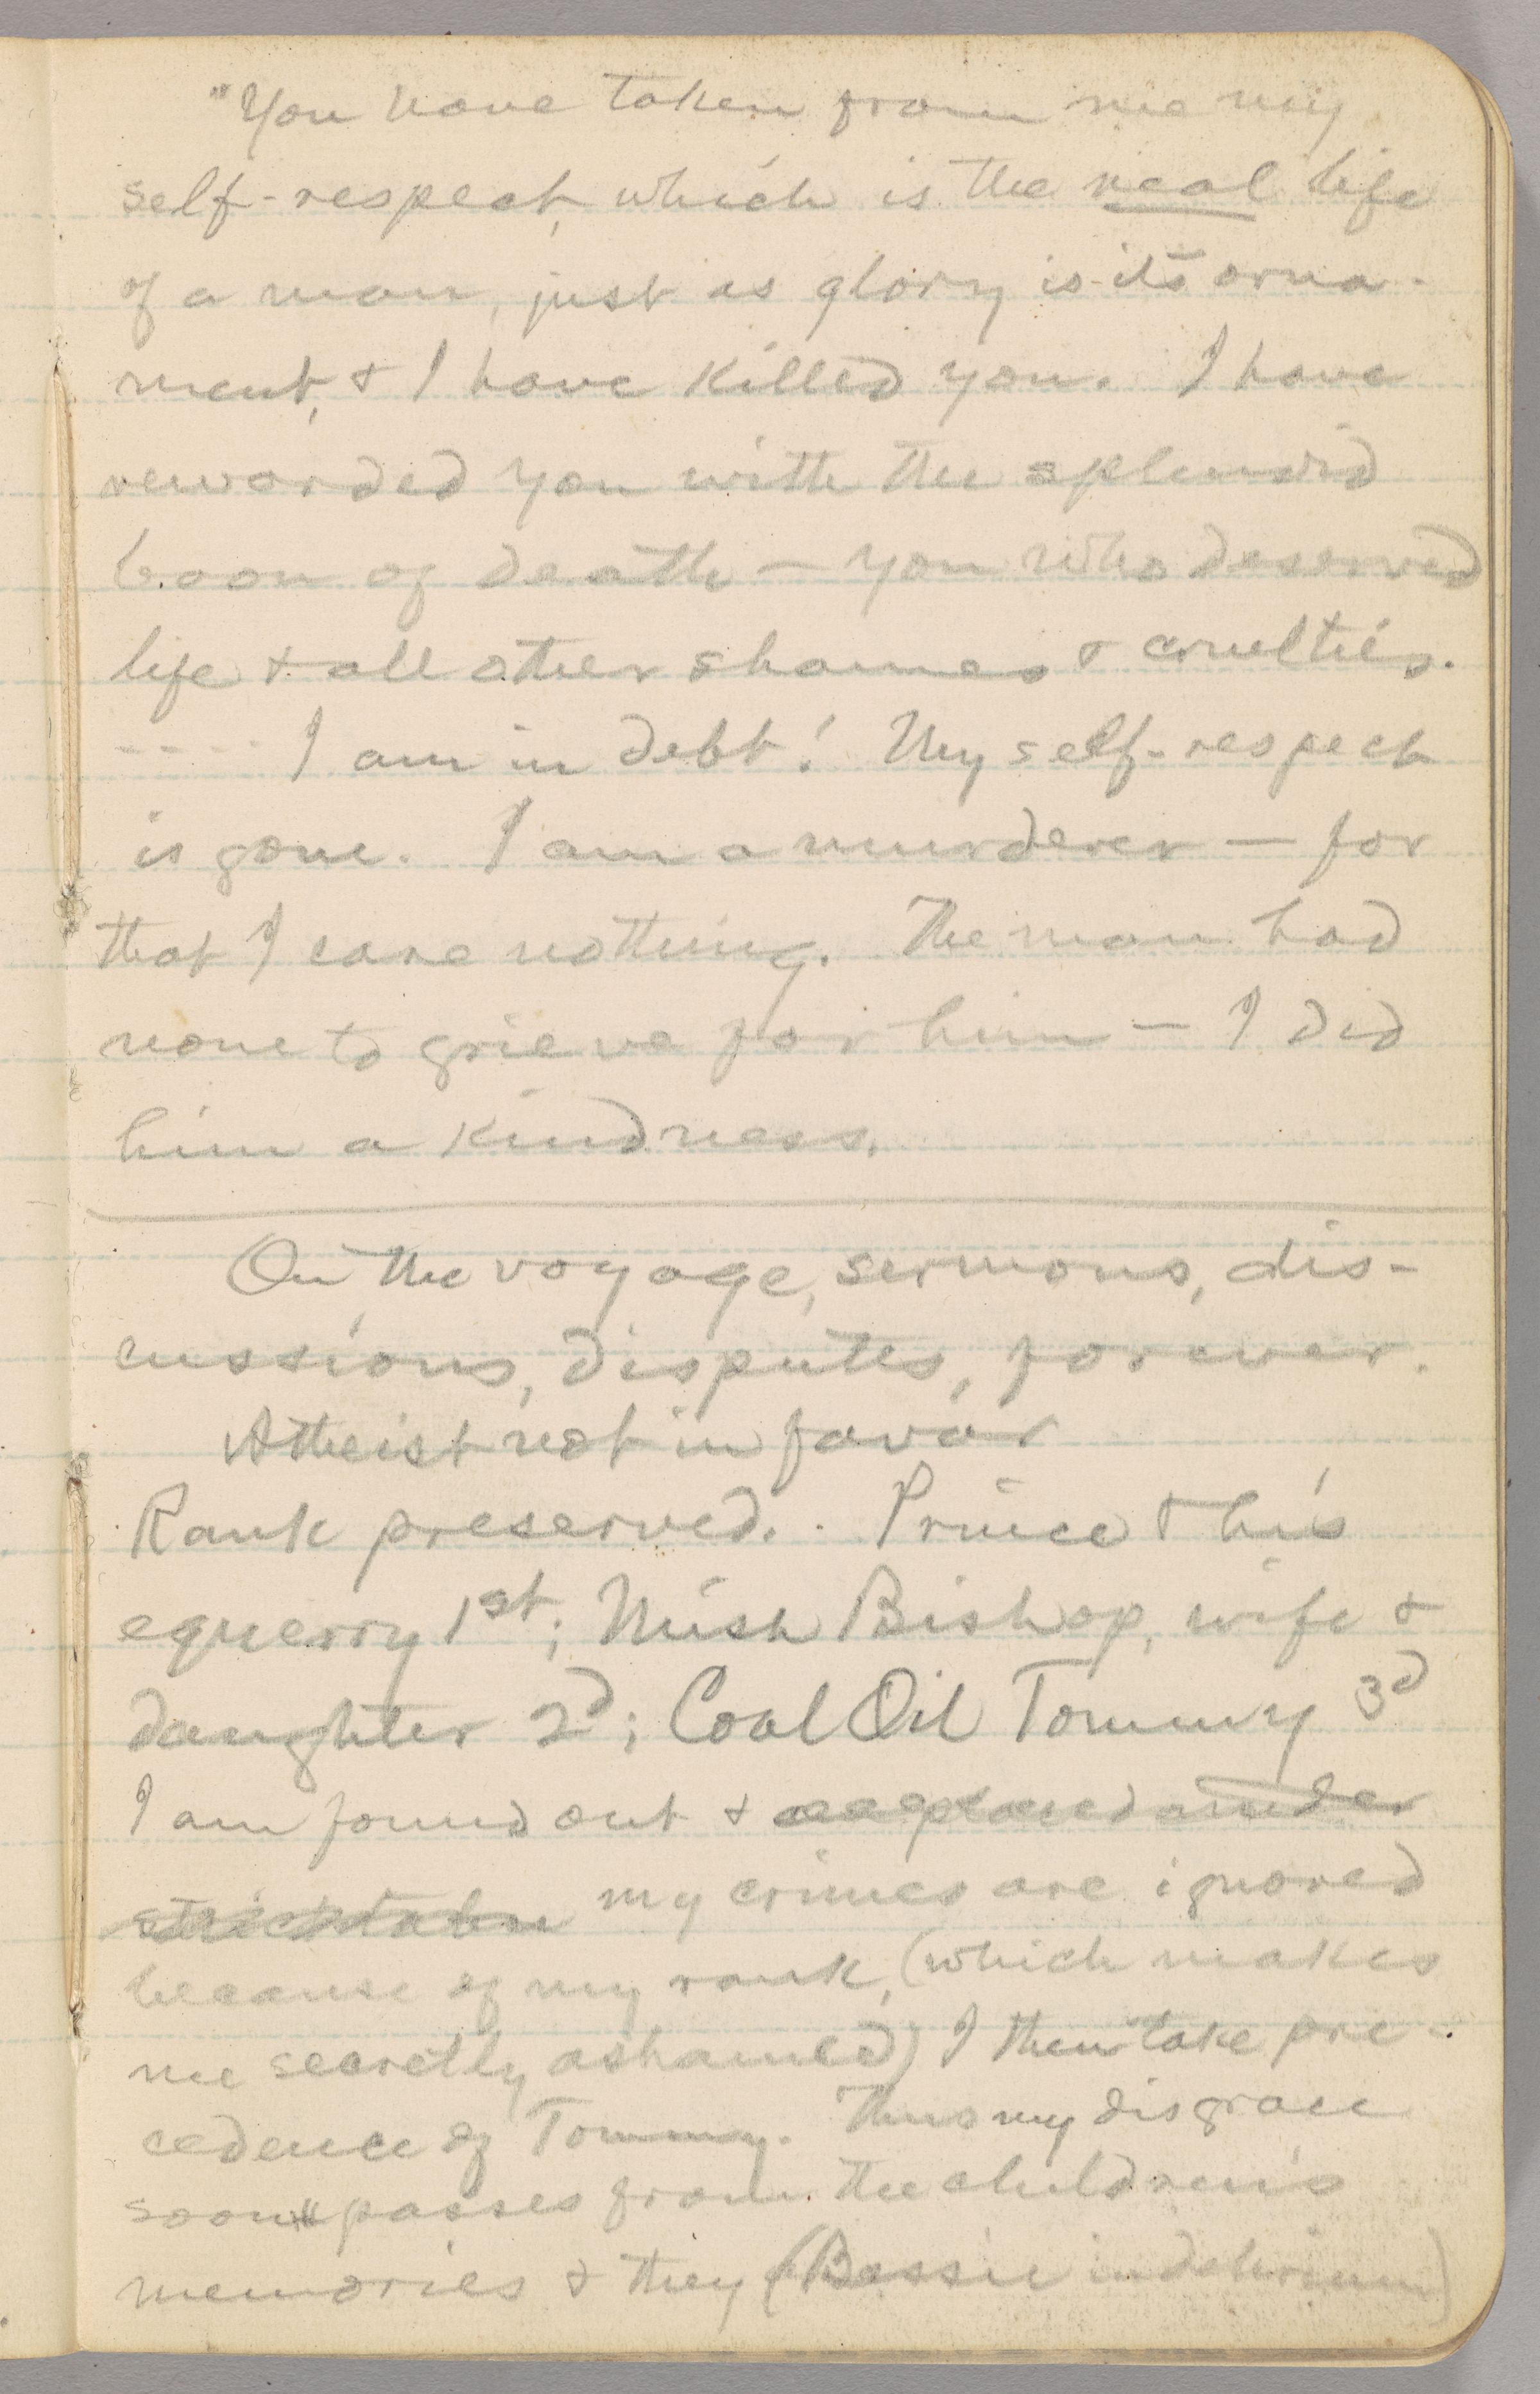 "You have taken from me my
self-respect, which is the real life
of a man, just as glory is its orna-
ment, & I have killed you. I have
rewarded you with the splendid
boon of death — you who deserved
life & all other shames & cruelties.
----- I am in debt! My self-respect
is gone. I am a murderer — for
that I care nothing. The man had
none to grieve for him — I did
him a kindness.
On the voyage, sermons, dis-
cussions, disputes, forever.
Atheist not in favor
Rank preserved. Prince & his
equerry 1st; Mish Bishop, wife &
daughter 2d; Coal Oil Tommy 3d
I am found out & placed under
strict tabu my crimes are ignored
because of my rank, (which makes
me secretly ashamed) I then take pre-
cedence of Tommy. Thus my disgrace
soon passes from the children's
memories & they (Bessie in delirium)